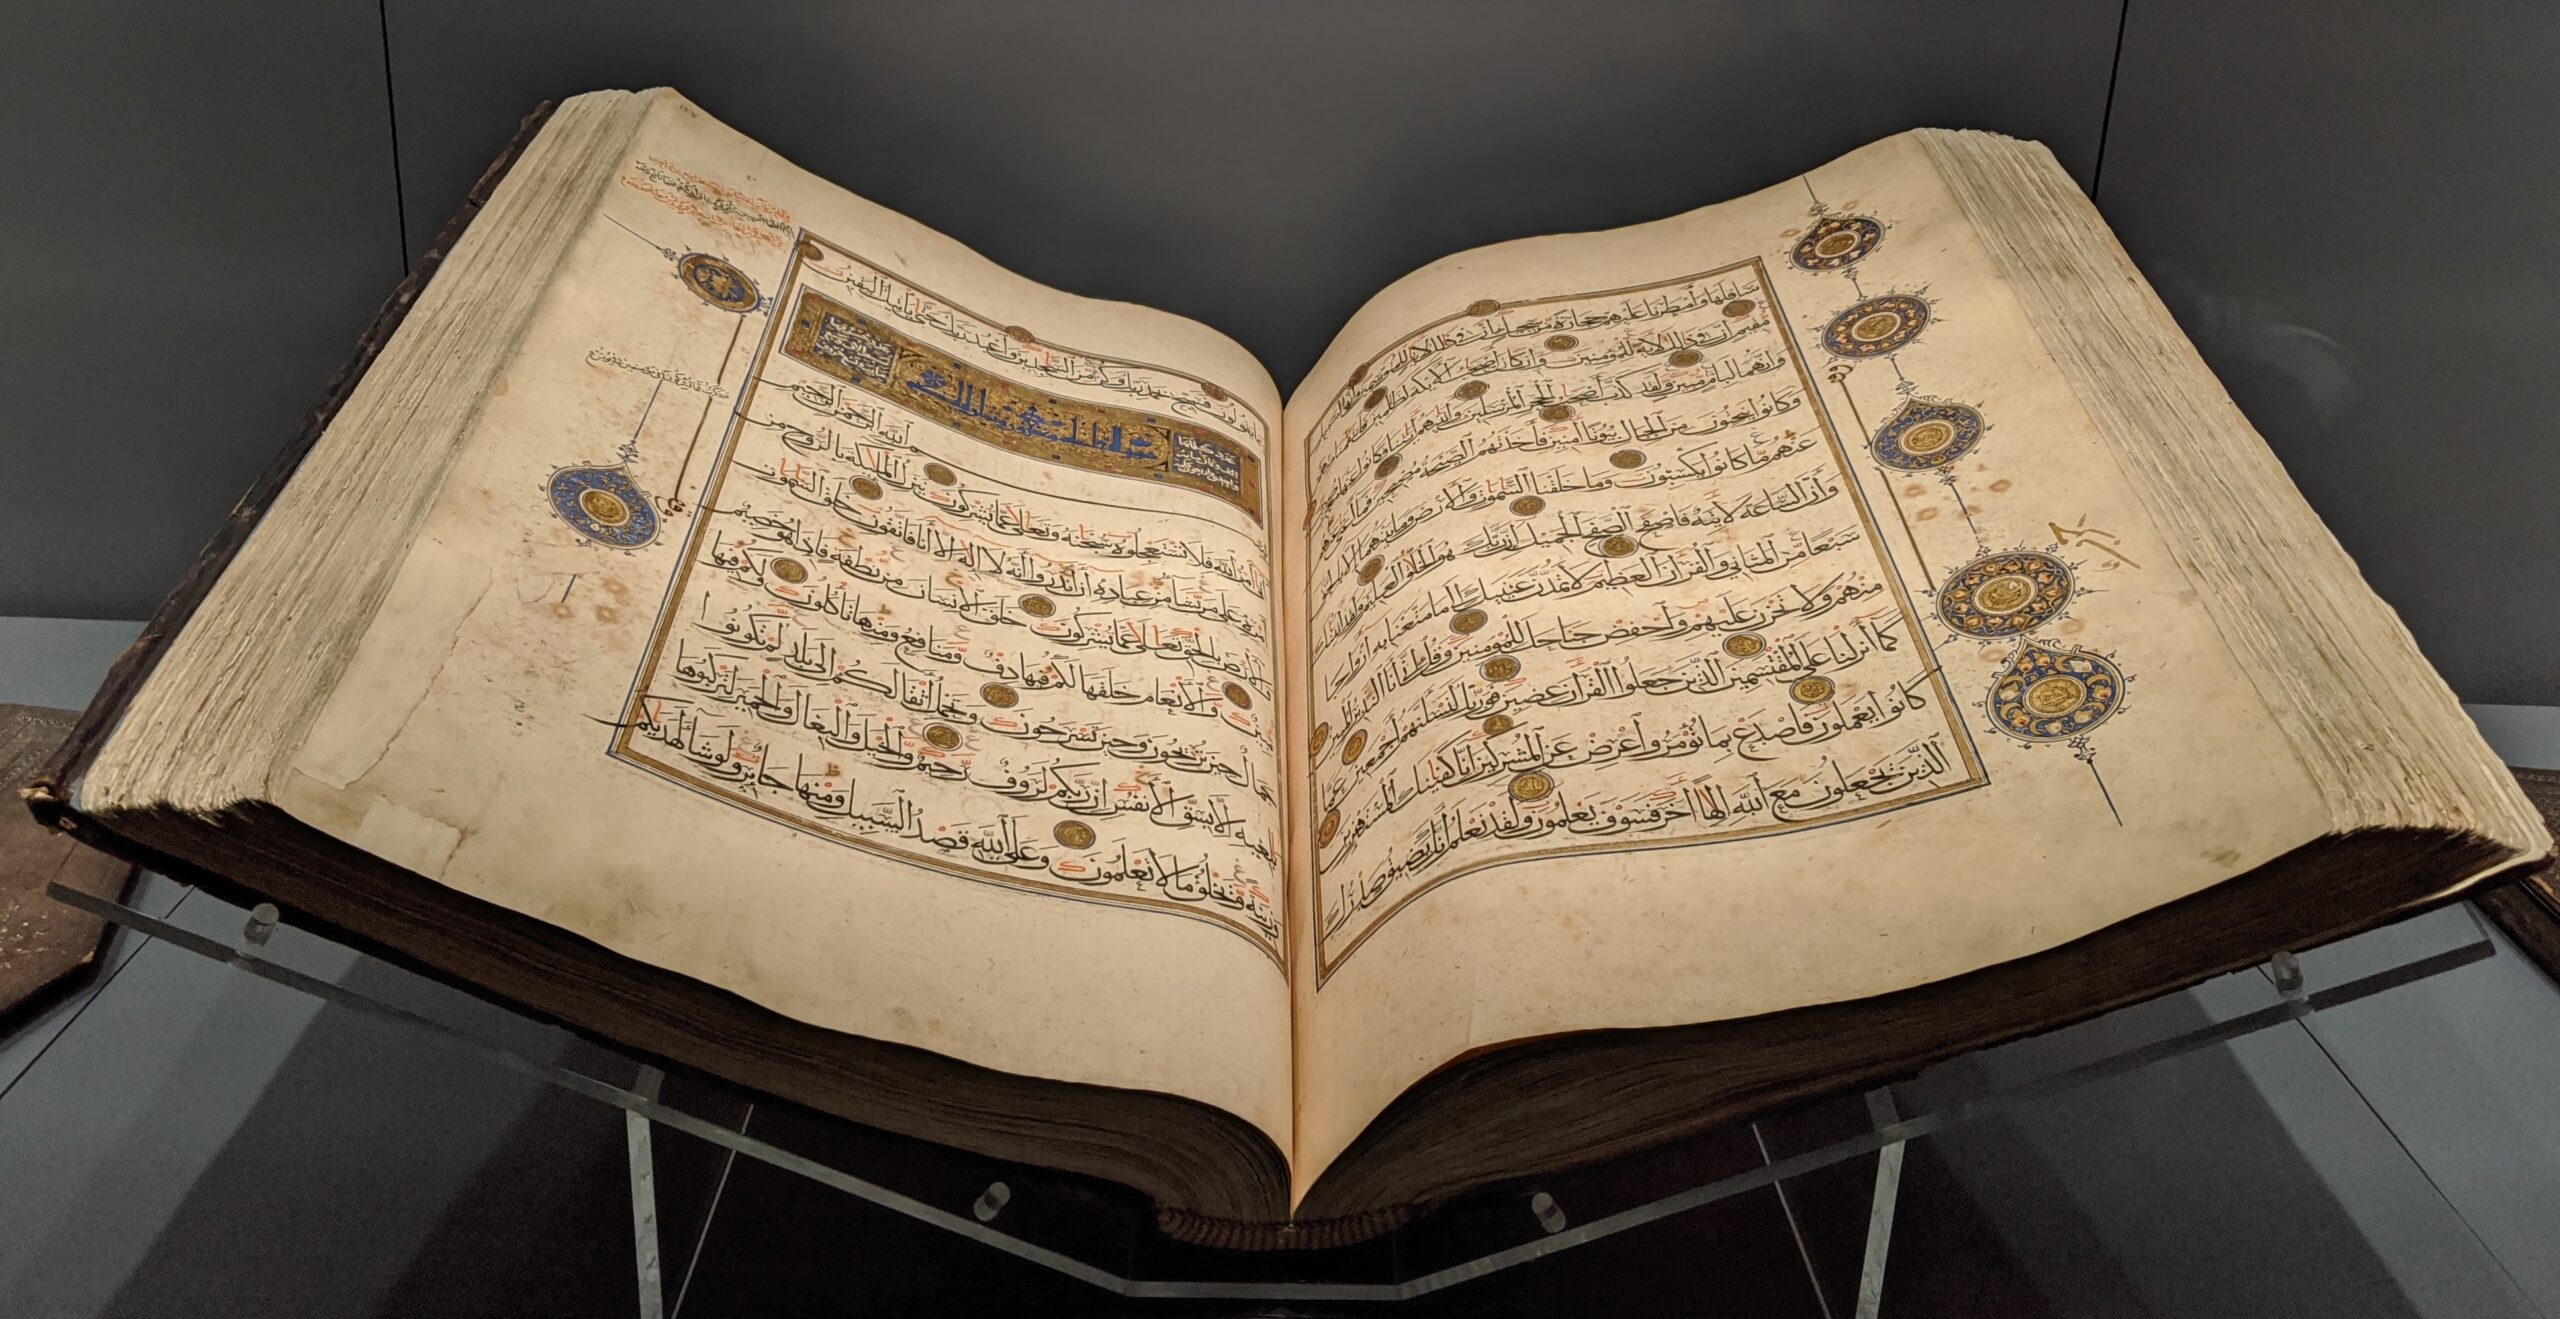 سافلها وأمطرنا عليهم حجارة من سجيل إن في ذلك لآيات للمتوسمين وإنها لبسبيل
مقيم إن في ذلك لآية للمؤمنين وإن كان أصحاب الأيكة لظالمين فانتقمنا منهم
وإنهما لبإمام مبين ولقد كذب أصحاب الحجر المرسلين وآتيناهم آياتنا فكانوا عنها معرضين
وكانوا ينحتون من الجبال بيوتا آمنين فأخذتهم الصيحة مصبحين فما أغنى
عنهم ما كانوا يكسبون وما خلقنا السموات والأرض وما بينهما إلا بالحق
وإن الساعة لآتية فاصفح الصفح الجميل إن ربك هو الخلاق العليم ولقد آتيناك
سبعا من المثاني والقرآن العظيم لا تمدن عينيك إلى ما متعنا به أزواجا
منهم ولا تحزن عليهم واخفض جناحك للمؤمنين وقل إني أنا النذير المبين
كما أنزلنا على المقتسمين الذين جعلوا القرآن عضين فوربك لنسئلنهم أجمعين عما
كانوا يعملون فاصدع بما تؤمر وأعرض عن المشركين إنا كفيناك المستهزئين
الذين يجعلون مع الله إلها آخر فسوف يعلمون ولقد نعلم أنك يضيق صدرك
بما يقولون فسبح بحمد ربك وكن من الساجدين واعبد ربك حتى يأتيك اليقين
بسم الله الرحمن الرحيم
أتى أمر الله فلا تستعجلوه سبحانه وتعالى عما يشركون ينزل الملائكة بالروح من
أمره على من يشاء من عباده أن أنذروا أنه لا إله إلا أنا فاتقون خلق السموات
والأرض بالحق تعالى عما يشركون خلق الإنسان من نطفة فإذا هو خصيم
مبين والأنعام خلقها لكم فيها دفء ومنافع ومنها تأكلون ولكم فيها
جمال حين تريحون وحين تسرحون وتحمل أثقالكم إلى بلد لم تكونوا
بالغيه إلا بشق الأنفس إن ربكم لرؤف رحيم والخيل والبغال والحمير لتركبوها
وزينة ويخلق ما لا تعلمون وعلى الله قصد السبيل ومنها جائر ولو شاء لهديكم